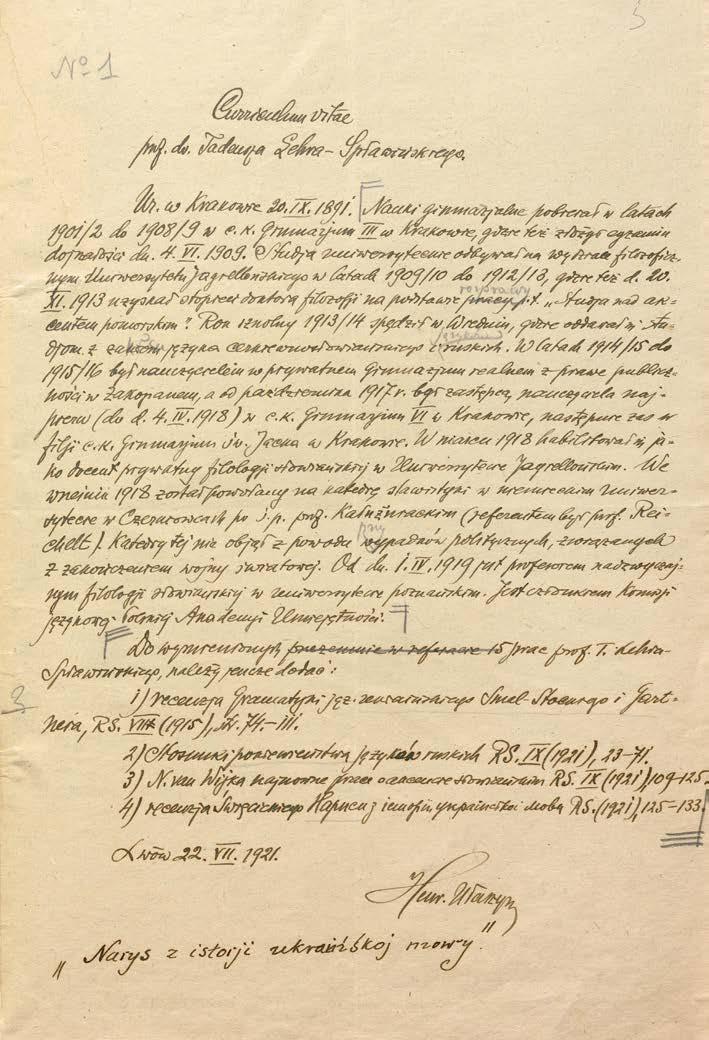 No 1
Curriculum vitae
prof. dr. Tadeusza Lehra-Spławińskiego.
Ur. w Krakowie 20. IX. 1891. Nauki gimnazjalne pobierał w latach
1901/2 do 1908/9 w c. k. Gimnazjum III w Krakowie, gdzie też złożył egzamin
dojrzałości dn. 4. VI. 1909. Studja uniwersyteckie odbywał na wydziale filozoficz-
nym Uniwersytetu Jagiellońskiego w latach 1909/10 do 1912/13, gdzie też d. 20.
rozprawy
XI. 1913 uzyskał stopień doktora filozofji na podstawie pracy p. t. „Studja nad ak-
centem pomorskim". Rok szkolny 1913/14 spędził w Wiedniu, gdzie oddawał się stu-
djom z zakresu języka cerkiewnosłowiańskiego i ruskich. W latach 1914/15 do
języków
1915/16 był nauczycielem w prywatnem Gimnazjum realnem z prawem publicz-
ności w Zakopanem, a od października 1917 r. był zastępcą nauczyciela naj-
pierw (do d. 4. IV. 1918) w c. k. Gimnazjum VI w Krakowie, następnie zaś w
filji c. k. Gimnazjum św. Jacka w Krakowie. W marcu 1918 habilitował się ja-
ko docent prywatny filologji słowiańskiej w Uniwersytecie Jagiellońskim. We
wrześniu 1918 został powołany na katedrę slawistyki w niemieckim Uniwer-
sytecie w Czerniowcach po ś. p. prof. Kałużniackim (referentem był prof. Rei-
chelt). Katedry tej nie objął z powodu wypadków politycznych, związanych
przy
z zakończeniem wojny światowej. Od dn. 1. IV. 1919 jest profesorem nadzwyczaj-
nym filologji słowiańskiej w uniwersytecie poznańskim. Jest członkiem Komisji
językowej Polskiej Akademji Umiejętności.
Do wymienionych przezemnie w referacie 15 prac prof. T. Lehra-
Spławińskiego, należy jeszcze dodać:
3
1) recenzja Gramatyki jęz. ukraińskiego Smal-Stockiego i Gart-
nera, RS. VII (1915), str. 74.–111.
2) Stosunki pokrewieństwa języków ruskich RS. IX (1921), 23–71.
3) N. van Wijka najnowsze prace o akcencie słowiańskim RS. IX (1921), 109–125.
4) recenzja Święcickiego Нариси з історії української мови RS. (1921), 125–133.
Lwów 22. VII. 1921.
Henr. Ułaszyn
„Narys z istorji ukraińśkoj mowy."